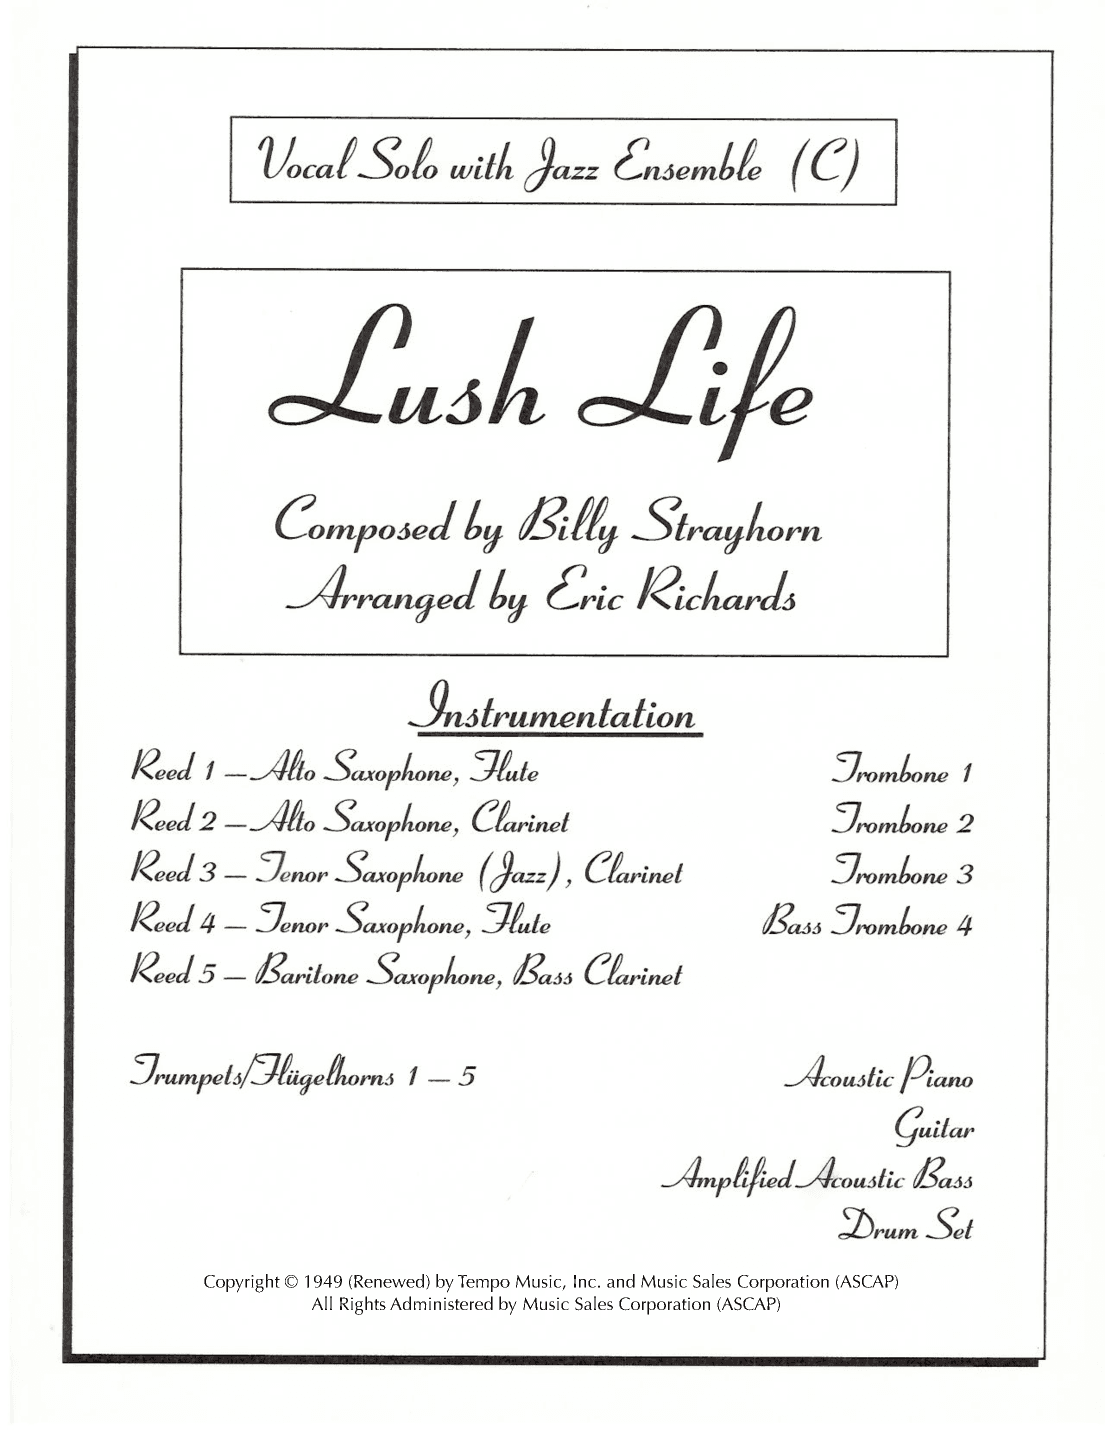 Vocal Solo with Jazz Ensemble (C)
Lush Life
Composed by Billy Strayhorn
Arranged by Eric Richards
Instrumentation
Reed 1 – Alto Saxophone, Flute
Trombone 1
Reed 2 – Alto Saxophone, Clarinet
Trombone 2
Reed 3 – Tenor Saxophone (Jazz), Clarinet
Trombone 3
Reed 4 – Tenor Saxophone, Flute
Bass Trombone 4
Reed 5 – Baritone Saxophone, Bass Clarinet
Trumpets/Flügelhorns 1 – 5
Acoustic Piano
Guitar
Amplified Acoustic Bass
Drum Set
Copyright © 1949 (Renewed) by Tempo Music, Inc. and Music Sales Corporation (ASCAP)
All Rights Administered by Music Sales Corporation (ASCAP)